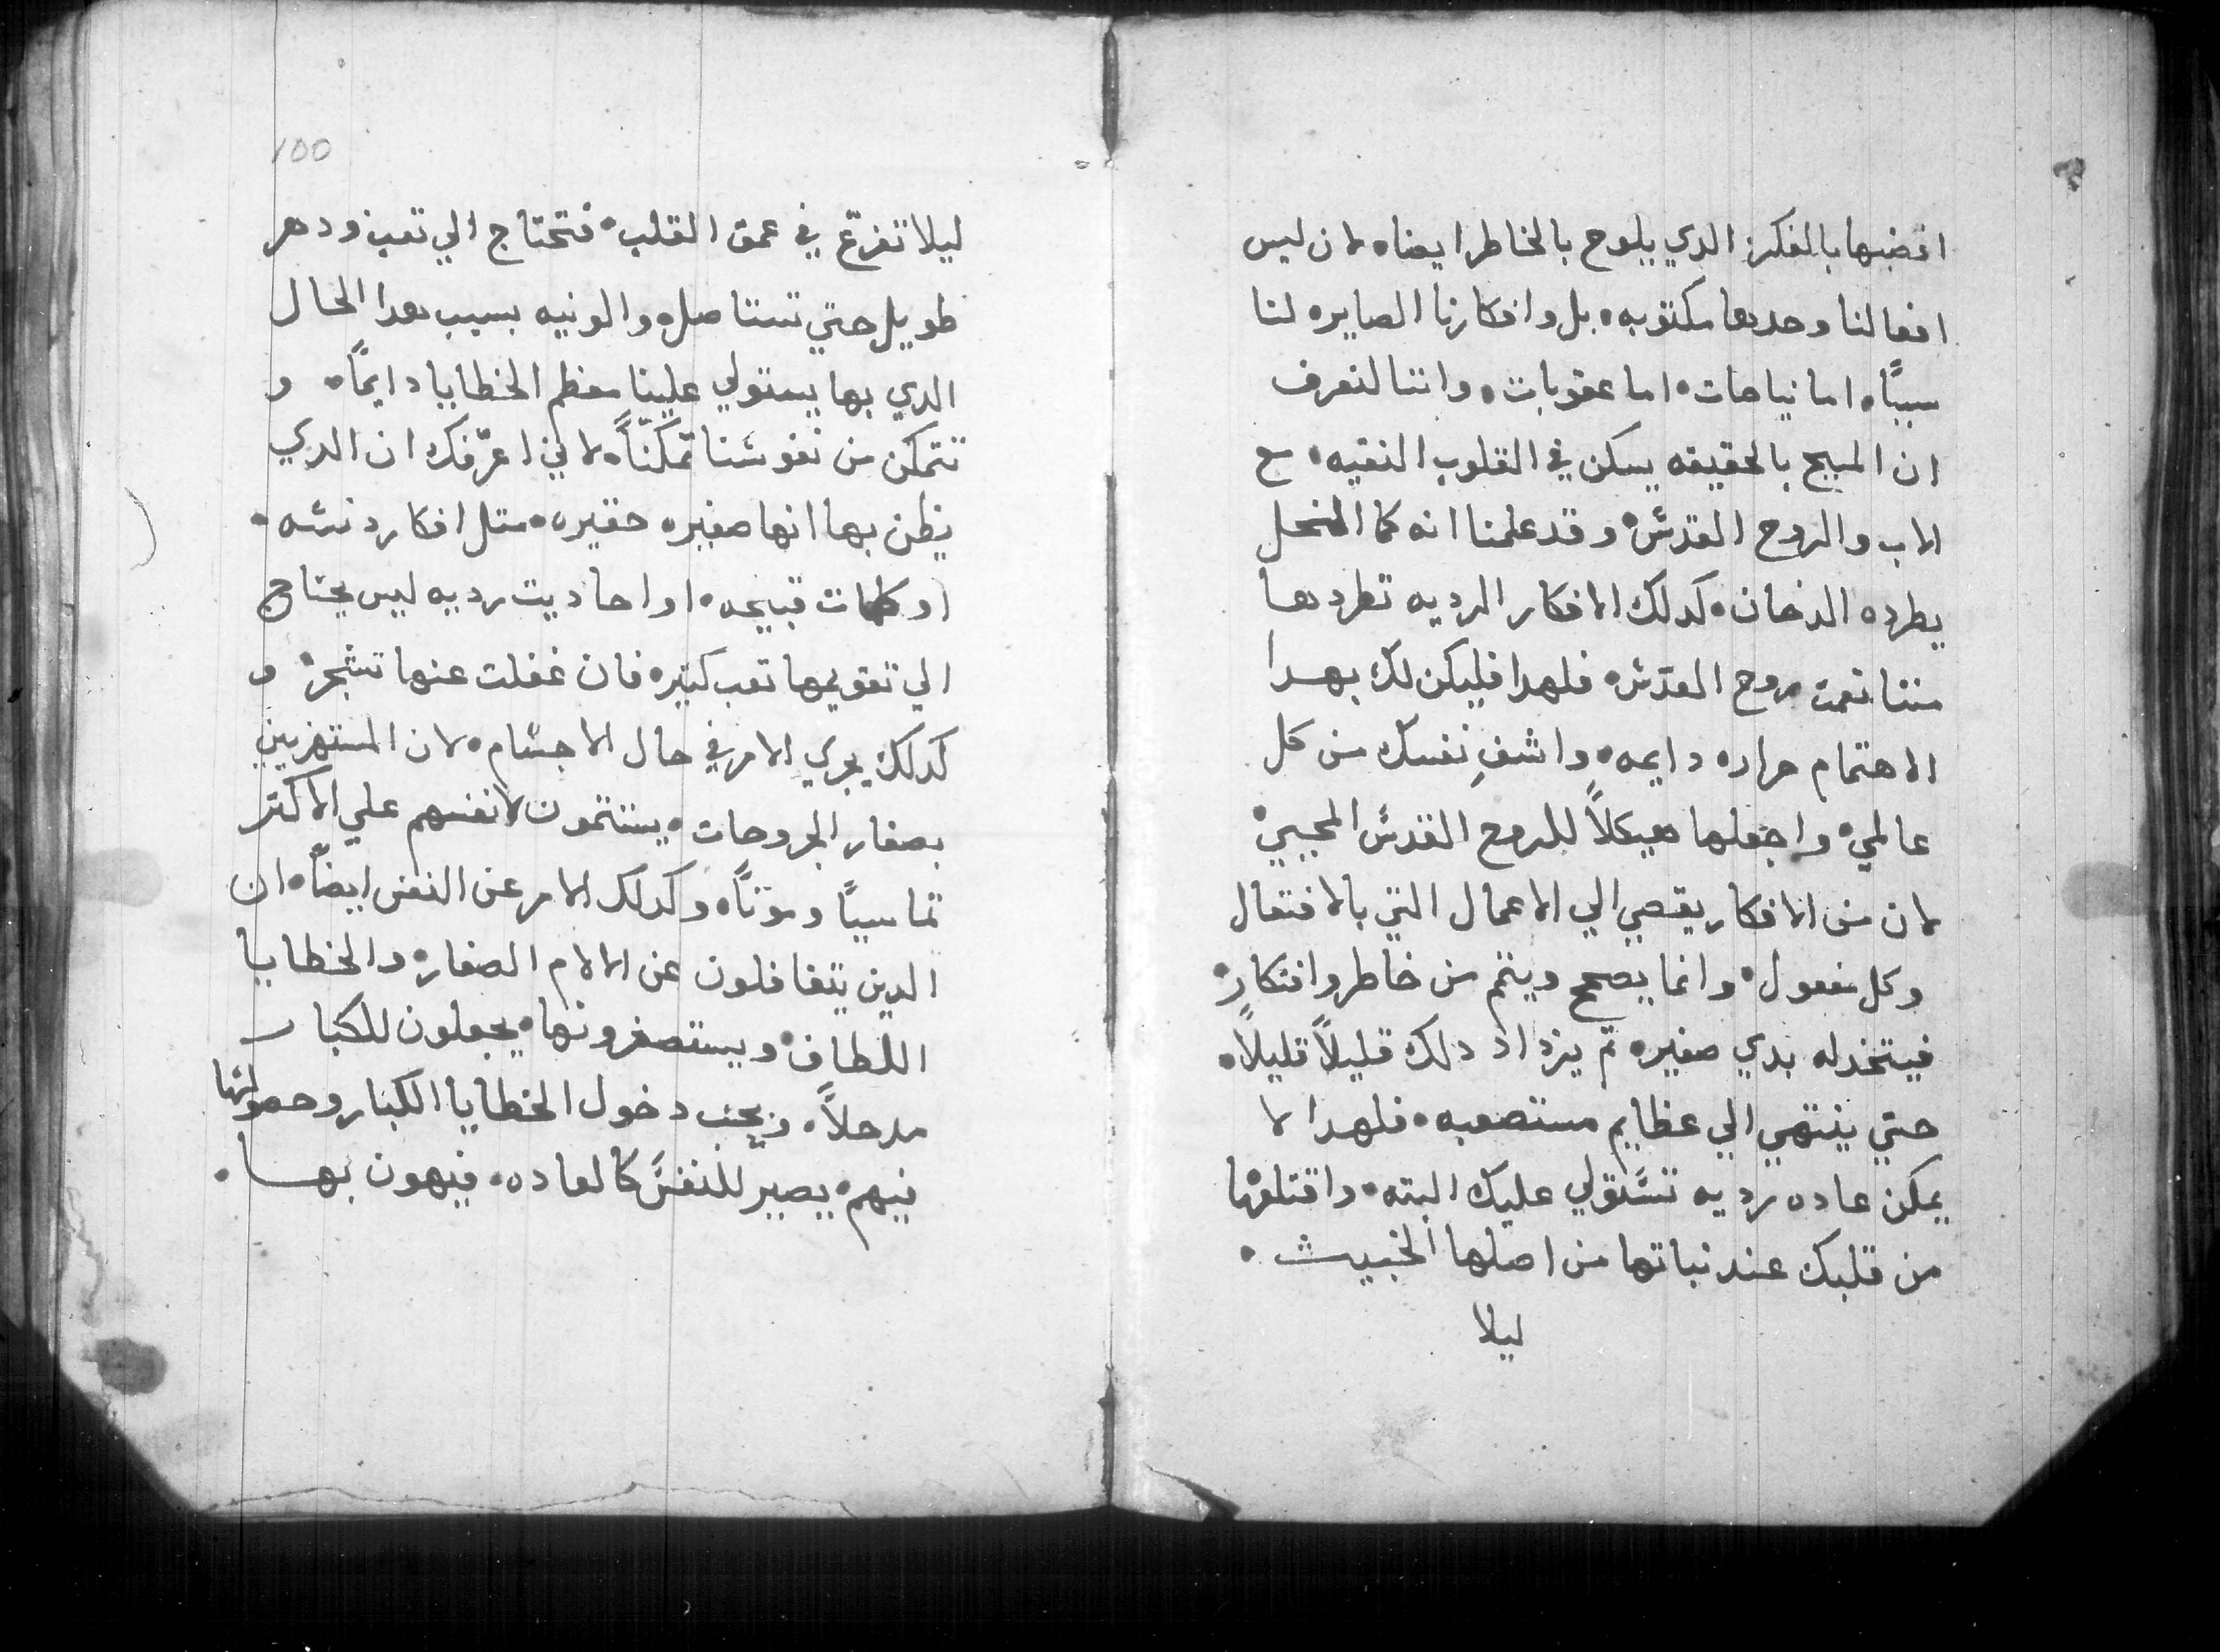 اغضبها بالفكر الدي يلوح بالخاطر ايضا، لان ليس
افعالنا وحدها مكتوبه، بل وافكارنا الصايره لنا
سببًا، اما نياحات، اما عقوبات، واننا لنعرف
ان المسيح بالحقيقه يسكن في القلوب النقيه، مع
الاب والروح القدس، وقد علمنا انه كما النحل
يطرده الدخان، كدلك الافكار الرديه تطردها
مننا نعمت روح القدس، فلهدا فليكن لك بهدا
الاهتمام حراره دايمه، واشفِ نفسك من كل
عالمي، واجعلها هيكلاً للروح القدس المحيي،
لان من الافكار يقصي الي الاعمال التي بالافتعال
وكل مفعول، وانما يصحح ويتم من خاطر وافتكار،
فيتخد له بدي صغير، تم يزداد دلك قليلاً قليلاً،
حتي ينتهي الي عظايم مستصعبه، فلهدا لا
يمكن عاده رديه تستولي عليك البته، واقتلعها
من قلبك عند نباتها من اصلها الخبيث،
ليلا
100
ليلا تفرّع في عمق القلب، فتحتاج الي تعب ودهر
طويل حتي تستاصله والونيه بسبب هدا الحال
الدي بها يستولي علينا معظم الخطايا دايمًا، و
تتمكن من نفوسنا تمكّنًا، لاني اعرّفك ان الدي
يظن بها انها صغيره حقيره، متل افكار دنسه،
او كلمات قبيحه، او احاديت رديه ليس يحتاج
الي تقويمها تعب كتير، فان غفلت عنها تشجر، و
كدلك يجري الامر في حال الاجسام، لان المستهزيين
بصغار الجروحات، يستتمون لانفسهم علي الاكتر
تماسيًا وموتًا، وكدلك الامر عن النفس ايضًا، ان
الدين يتغافلون عن الالام الصغار، والخطايا
اللطاف، ويستصغرونها، يجعلون للكبار
مدخلاً، دخول الخطايا الكبار وحصولها
فيهم، يصير للنفس كالعاده، فيهون بها،